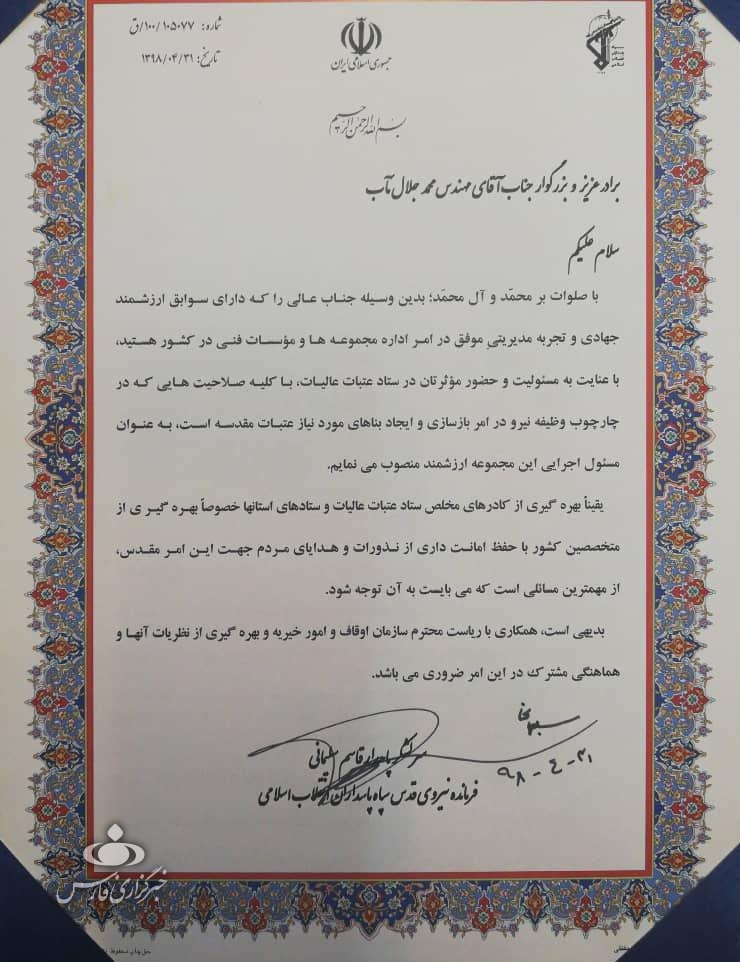 شماره: ۱۰۰/۱۰۵۰۷۷/ق
تاریخ: ۱۳۹۸/۰۴/۳۱
جمهوری اسلامی ایران
بسم الله الرحمن الرحیم
برادر عزیز و بزرگوار جناب آقای مهندس محمد جلال مآب
سلام علیکم
با صلوات بر محمّد و آل محمّد؛ بدین وسیله جناب عالی را که دارای سوابق ارزشمند
جهادی و تجربه مدیریتیِ موفق در امر اداره مجموعه ها و مؤسسات فنی در کشور هستید،
با عنایت به مسئولیت و حضور مؤثرتان در ستاد عتبات عالیات، با کلیه صلاحیت هایی که در
چارچوب وظیفه نیرو در امر بازسازی و ایجاد بناهای مورد نیاز عتبات مقدسه است، به عنوان
مسئول اجرایی این مجموعه ارزشمند منصوب می نمایم.
یقیناً بهره گیری از کادرهای مخلص ستاد عتبات عالیات و ستادهای استانها خصوصاً بهره گیری از
متخصصین کشور با حفظ امانت داری از نذورات و هدایای مردم جهت این امر مقدس،
از مهمترین مسائلی است که می بایست به آن توجه شود.
بدیهی است، همکاری با ریاست محترم سازمان اوقاف و امور خیریه و بهره گیری از نظریات آنها و
هماهنگی مشترک در این امر ضروری می باشد.
سرلشکر پاسدار قاسم سلیمانی
۹۸-۴-۳۱
فرمانده نیروی قدس سپاه پاسداران انقلاب اسلامی
خبرگزاری فارس